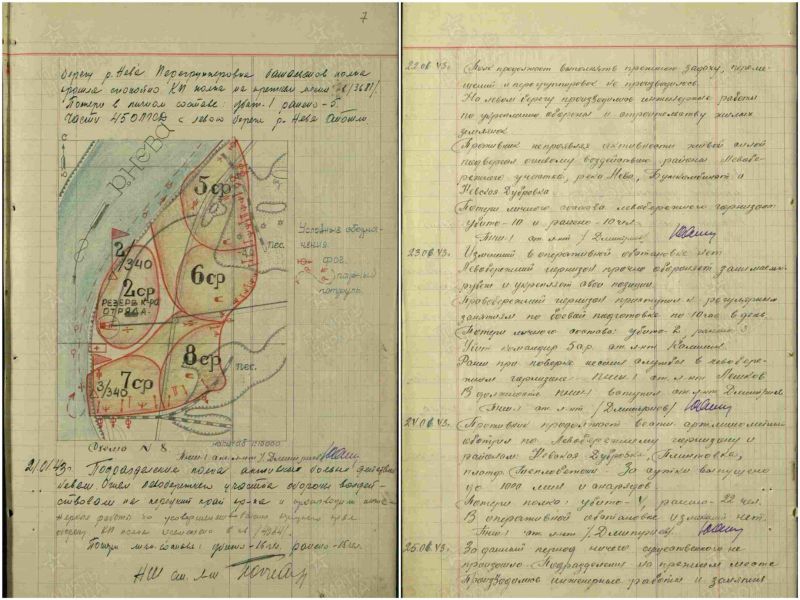 7
берегу р. Нева Перегруппировка батальонов полка
прошла спокойно КП полка на прежнем месте
Потери в личном составе убит-1 ранено-5.
Части 45 с левого берега р. Нева отошли.
р. НЕВА
5ср
лес.
Условные обозна-
чения.
ФОГ.
парный
патруль.
6ср
2/340
2ср
РЕЗЕРВ К-РА
ОТРЯДА.
8ср
лес.
3/340
7ср
Схема № 8.
масштаб
ПНШ-1 ст. л-нт /Дмитриев/
Подразделения полка активных боевых действий
Огнем левобережн участка обороны воздей-
ствовали на передний край пр-ка и производили инже-
нерные работы по усовершенствованию
КП полка
Потери лич. состава: убито-16 ранено-15
НШ
22.06.43г.
Полк продолжает выполнять прежнюю задачу, переме-
щений и перегруппировок не производилось.
На левом берегу производились инженерные работы
по укреплению обороны и строительству жилых
землянок.
Противник непроявляя активности живой силой
подвергал огневому воздействию районы Левобе-
режного участка, река Нева, Бумкомбинат и
Невская Дубровка.
Потери личного состава левобережного гарнизона:
убито-10 и ранено-10 чел.
ПНШ-1 ст. л-нт /Дмитриев/
23.06.43г.
Измений в оперативной обстановке нет.
Левобережный гарнизон прочно обороняет занимаем.
рубеж и укрепляет свои позиции.
Правобережный гарнизон приступил к регулярным
занятиям по боевой подготовке по 10 час в день.
Потери личного состава: убито-2 ранен 3
Убит командир 5 ср. ст. л-нт Калинин.
Ранен при поверке несения службы в левобере-
жном гарнизоне ПНШ-1 ст. л-нт Мешков
В должность ПНШ-1 вступил ст. л-нт Дмитриев
ПНШ-1 ст. л-нт /Дмитриев/
24.06.43г.
Противник продолжает вести арт. минометный
обстрел по Левобережному гарнизону и
районам: Невская Дубровка, Плинтовка,
платф. Теплобетон. За сутки выпущено
до 1000 мин и снарядов.
Потери полка: убито-4, ранено-22 чел.
В оперативной обстановке измений нет.
ПНШ-1 ст. л-нт /Дмитриев/
25.06.43г.
За данный период ничего существенного не
произошло. Подразделения на прежнем месте
Производились инженерные работы и занятия